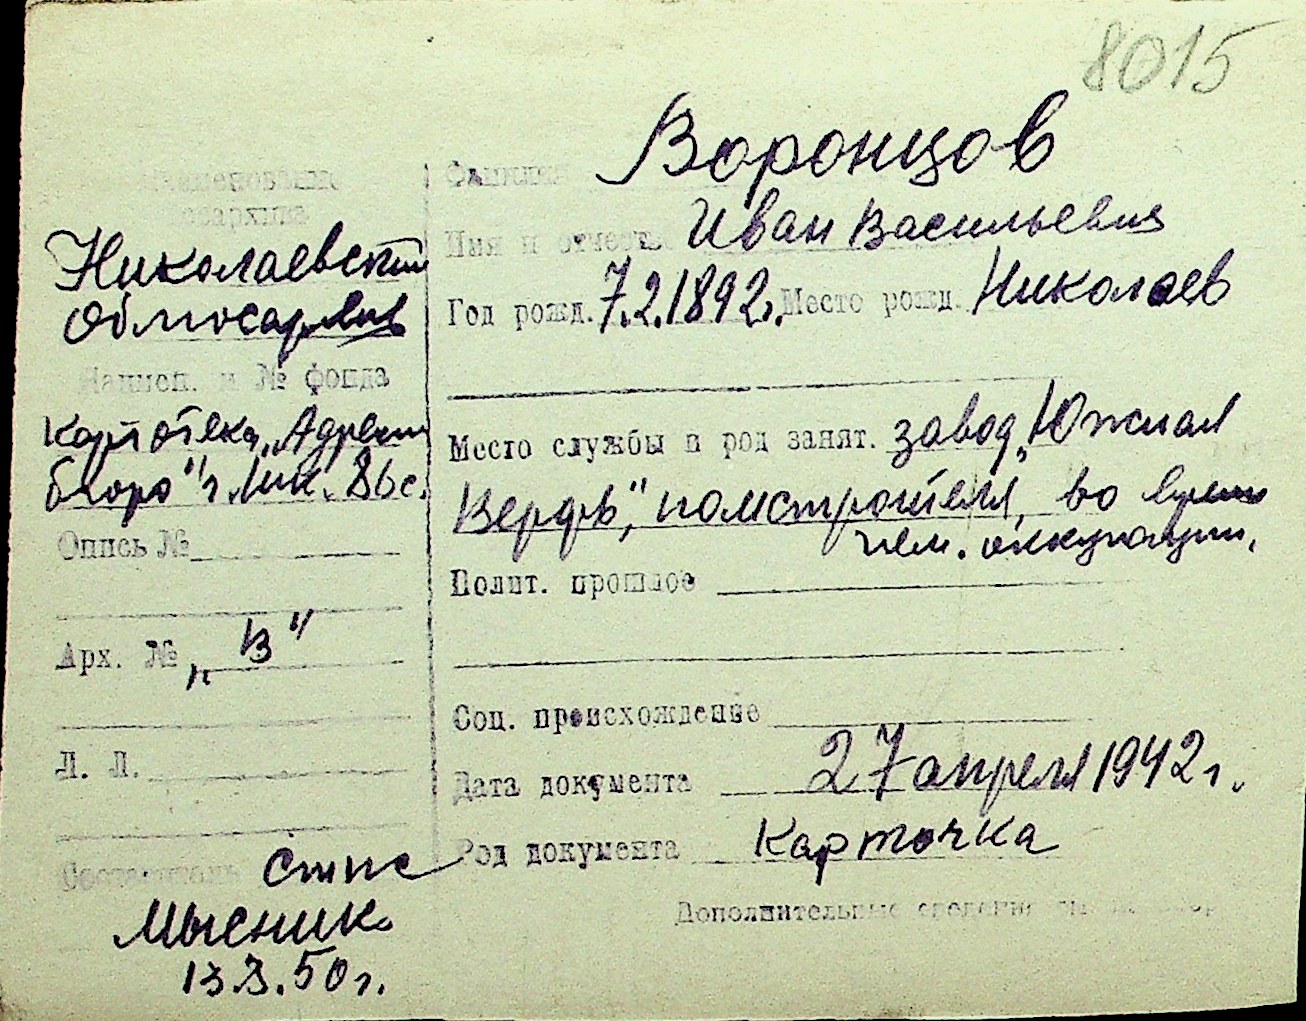 8015
Наименование
госархива
Николаевский
Облгосархив
Наимен. и № фонда
Картотека „Адресн
бюро" г. Ник.
Опись №
Арх. № „В"
Л. Л.
Составитель
Мысник
50 г.
Фамилия Воронцов
Имя и отчество Иван Васильевич
Год рожд. 7.2.1892г. Место рожд. Николаев
Место службы и род занят. завод „Южная
Верфь", помстроителя, во время
нем. оккупации.
Полит. прошлое
Соц. происхождение
Дата документа 27 апреля 1942 г.
Род документа Карточка
Дополнительные сведения